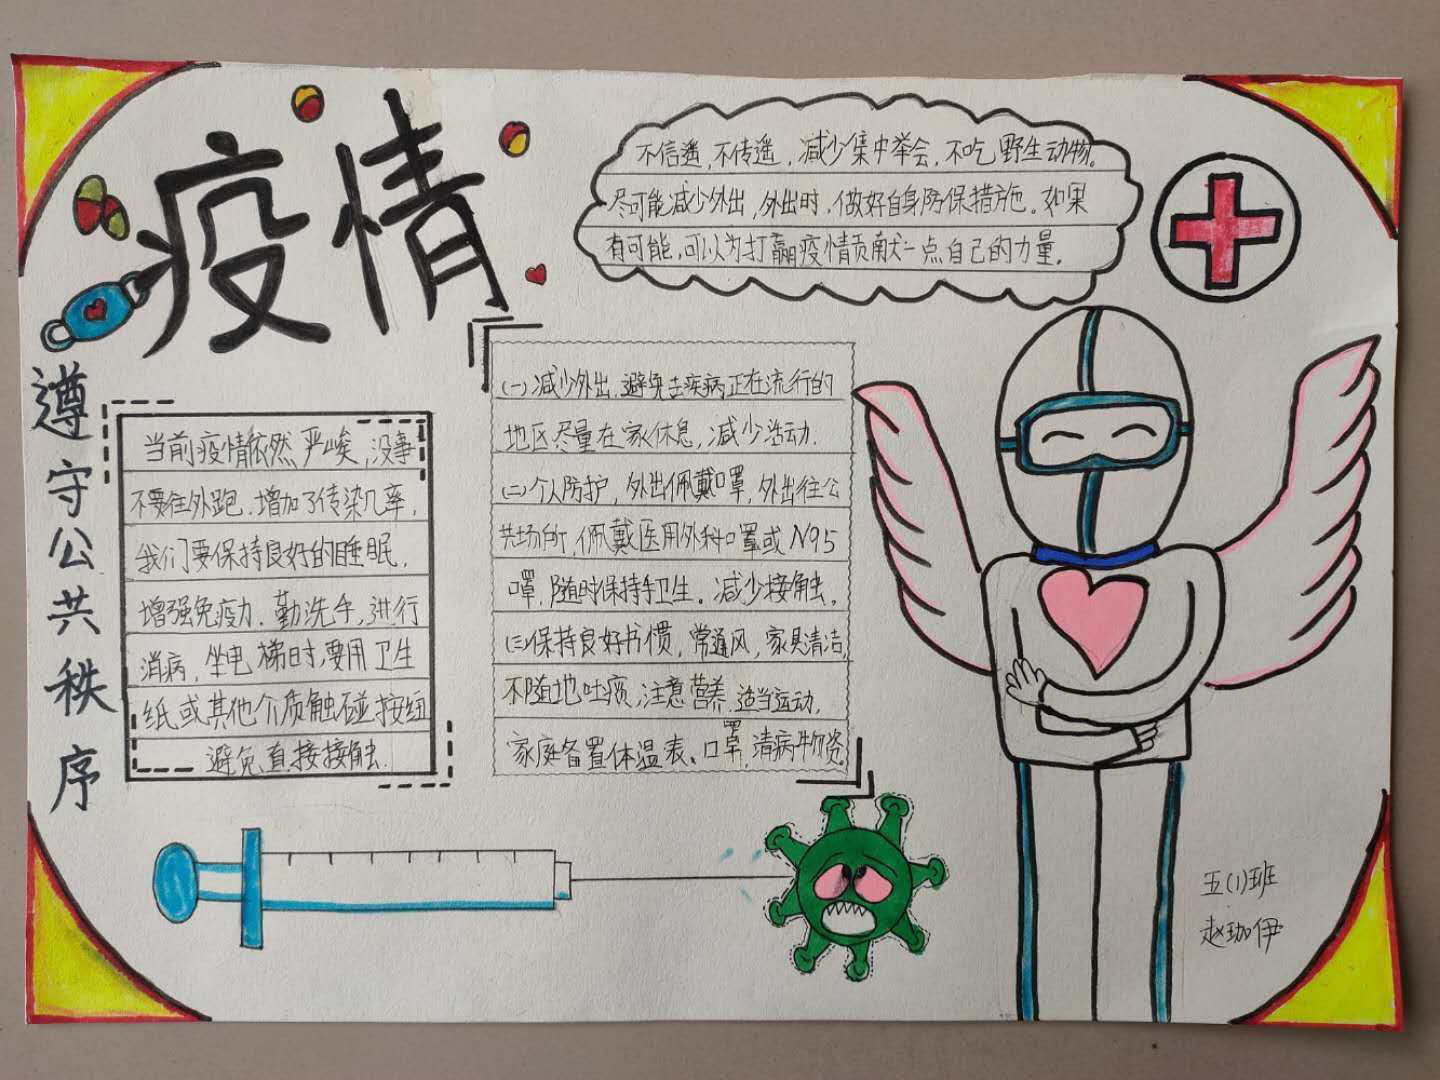 疫情
不信遥，不传遥，减少集中举会，不吃野生动物。
尽可能减少外出，外出时，做好自身防保措施。如果
有可能，可以为打赢疫情贡献一点自己的力量。
遵守公共秩序
当前疫情依然严峻，没事
不要往外跑．增加了传染几率，
我们要保持良好的睡眠，
增强免疫力．勤洗手，进行
消病，坐电梯时，要用卫生
纸或其他介质触碰按纽
避免直接接触．
(一)减少外出，避免去疾病正在流行的
地区尽量在家休息，减少活动．
(二)个人防护，外出佩戴口罩，外出往公
共场所，佩戴医用外科口罩或N95
口罩，随时保持手卫生。减少接触。
(三)保持良好习惯，常通风，家具清洁，
不随地吐痰，注意营养，适当运动．
家庭备置体温表、口罩，清病物资
五(1)班
赵珈伊